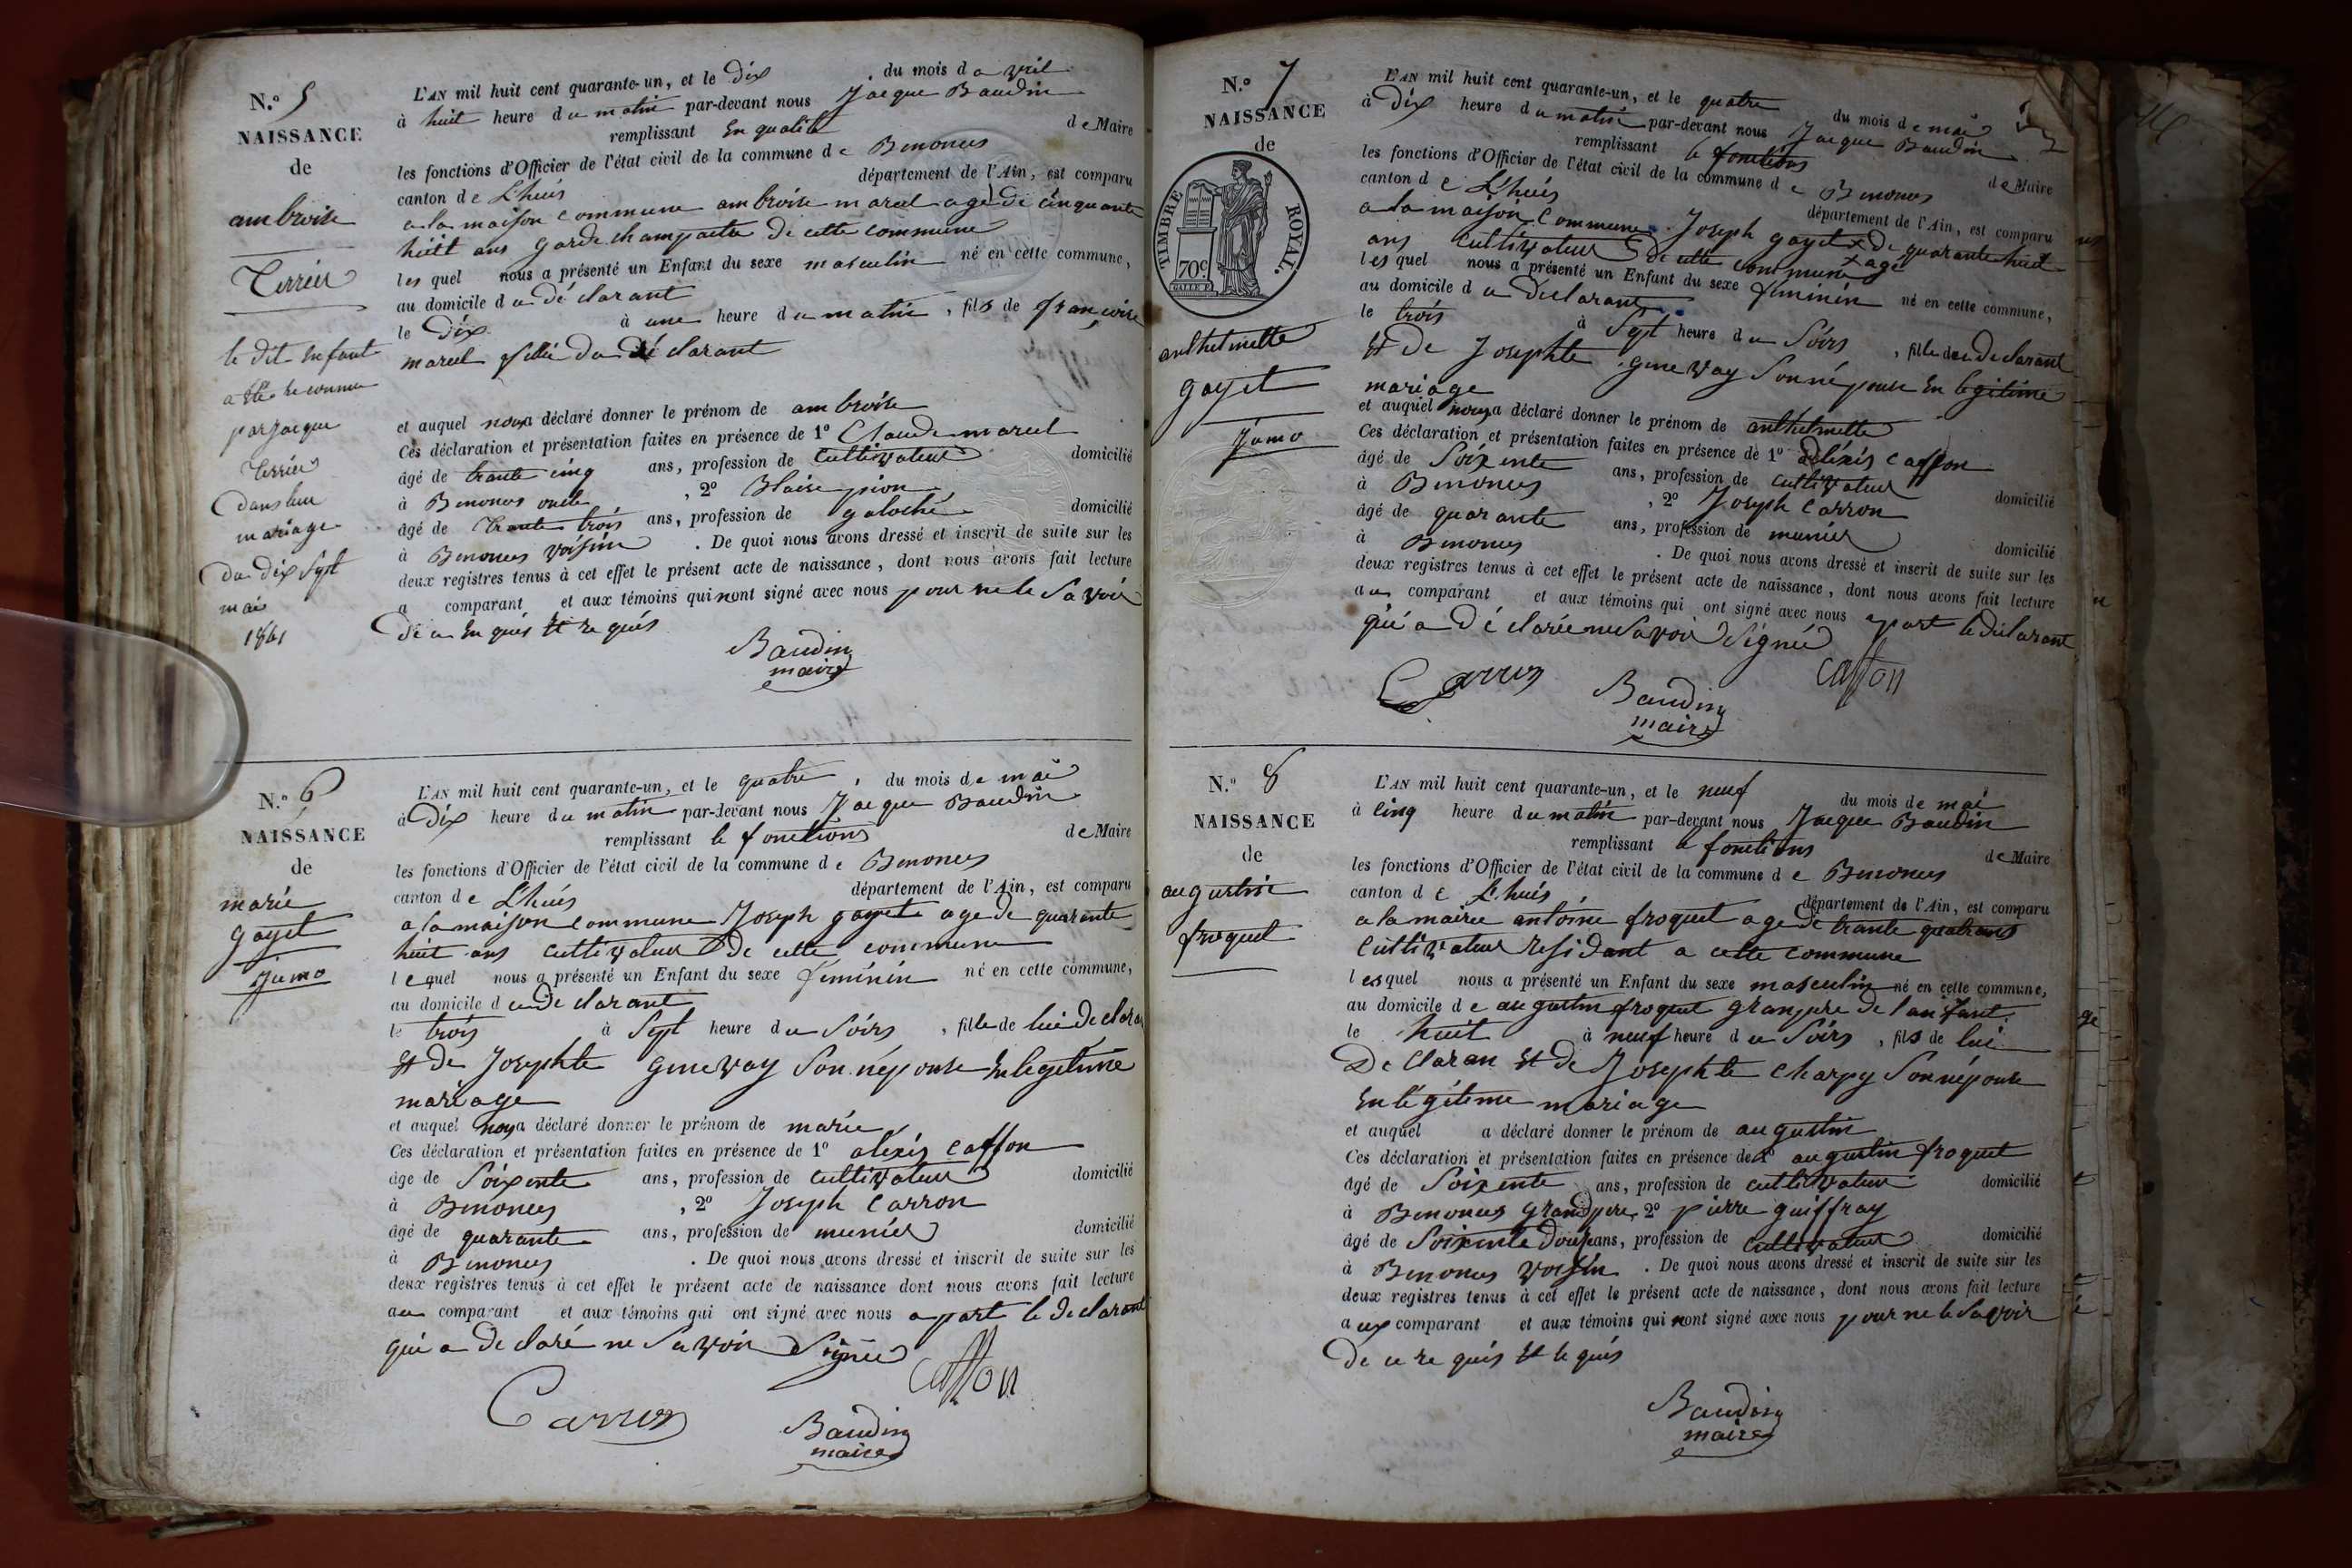 N.o 5
NAISSANCE
de
ambroise
Terrier
le dit enfant
a été reconnu
par jacque
Terrier
Dans leur
mariage
du dix sept
mai
1861
L'AN mil huit cent quarante-un, et le dix du mois d avril
à huit heure du matin par-devant nous Jacque Baudin
remplissant En qualité de Maire
les fonctions d'Officier de l'état civil de la commune de Benonces
canton de L'huis département de l'Ain, est comparu
a la maison commune ambroise marcel agé de cinquante
huit ans garde champaitre de cette commune
les quel nous a présenté un Enfant du sexe masculin né en cette commune,
au domicile du déclarant
le Dix à une heure du matin, fils de françoise
marcel fille du déclarant
et auquel nous a déclaré donner le prénom de ambroise
Ces déclaration et présentation faites en présence de 1o Claude marcel
âgé de trante cinq ans, profession de Cultivateur domicilié
à Benonces oncle, 2o Blaise pion
âgé de Trante trois ans, profession de galoché domicilié
à Benonces voisin. De quoi nous avons dressé et inscrit de suite sur les
deux registres tenus à cet effet le présent acte de naissance, dont nous avons fait lecture
a comparant et aux témoins qui nont signé avec nous pour ne le Savoir
de ce En quis Et re quis
Baudin
maire
N.o 6
NAISSANCE
de
marie
gayet
Jumo
L'AN mil huit cent quarante-un, et le quatre, du mois de mai
à Dix heure du matin par-devant nous Jacque Baudin
remplissant le fonctions de Maire
les fonctions d'Officier de l'état civil de la commune de Benonces
canton de L'huis département de l'Ain, est comparu
a la maison commune Joseph gayet age de quarante
huit ans cultivateur de cette commune
lequel nous a présenté un Enfant du sexe féminin né en cette commune,
au domicile du declarant
le trois à Sept heure du Soirs, fille de lui declaran
Et de Josephte genevay Son népouse En legetime
mariage
et auquel nous a déclaré donner le prénom de marie
Ces déclaration et présentation faites en présence de 1o alexis Caffon
âgé de Soixente ans, profession de cultivateur domicilié
à Benonces, 2o Joseph Carron
âgé de quarante ans, profession de munier domicilié
à Benonces. De quoi nous avons dressé et inscrit de suite sur les
deux registres tenus à cet effet le présent acte de naissance dont nous avons fait lecture
au comparant et aux témoins qui ont signé avec nous apart le declarant
qui a declaré ne Savoir Signer
Caffon
Carron
Baudin
maire
N.o 7
NAISSANCE
de
TIMBRE ROYAL.
70c
anthelmette
gayet
Jumo
L'AN mil huit cent quarante-un, et le quatre du mois de mai
à Dix heure du matin par-devant nous Jacque Baudin
remplissant le fonctions de Maire
les fonctions d'Officier de l'état civil de la commune de Benonces
canton de L'huis département de l'Ain, est comparu
a la maison Commune Joseph gayet x de quarante huit
ans cultivateur de cette commune x agé
lesquel nous a présenté un Enfant du sexe féminin né en cette commune,
au domicile du declarant
le trois à Sept heure du Soirs, fille de du declarant
Et de Josephte genevay Son népouse En legitime
mariage
et auquel nous a déclaré donner le prénom de anthelmette
Ces déclaration et présentation faites en présence de 1o alexis Caffon
âgé de Soixente ans, profession de cultivateur domicilié
à Benonces, 2o Joseph Carron
âgé de quarante ans, profession de munier domicilié
à Benonces. De quoi nous avons dressé et inscrit de suite sur les
deux registres tenus à cet effet le présent acte de naissance, dont nous avons fait lecture
au comparant et aux témoins qui ont signé avec nous apart le declarant
qui a déclarée ne Savoir Signé
Carron
Baudin
maire
Caffon
N.o 8
NAISSANCE
de
augustin
froquet
L'AN mil huit cent quarante-un, et le neuf du mois de mai
à cinq heure du matin par-devant nous Jacque Baudin
remplissant le fonctions de Maire
les fonctions d'Officier de l'état civil de la commune de Benonces
canton de L'huis département de l'Ain, est comparu
a la mairie antoine froquet age de trante quatrans
cultivateur residant a cette commune
lesquel nous a présenté un Enfant du sexe masculin né en cette commune,
au domicile de augustin froquet granpere de l'anfant
le huit à neuf heure du Soirs, fils de lui
De claran Et de Josephte Charpy Son népouse
En légéteme mariage
et auquel a déclaré donner le prénom de augustin
Ces déclaration et présentation faites en présence de 1o augustin froquet
âgé de Soixente ans, profession de cultivateur domicilié
à Benonces Grand pere, 2o pierre guiffray
âgé de Soixente Douse ans, profession de cultivateur domicilié
à Benonces voisin. De quoi nous avons dressé et inscrit de suite sur les
deux registres tenus à cet effet le présent acte de naissance, dont nous avons fait lecture
aux comparant et aux témoins qui nont signé avec nous pour ne le Savoir
De ce re quis Et le quis
Baudin
maire